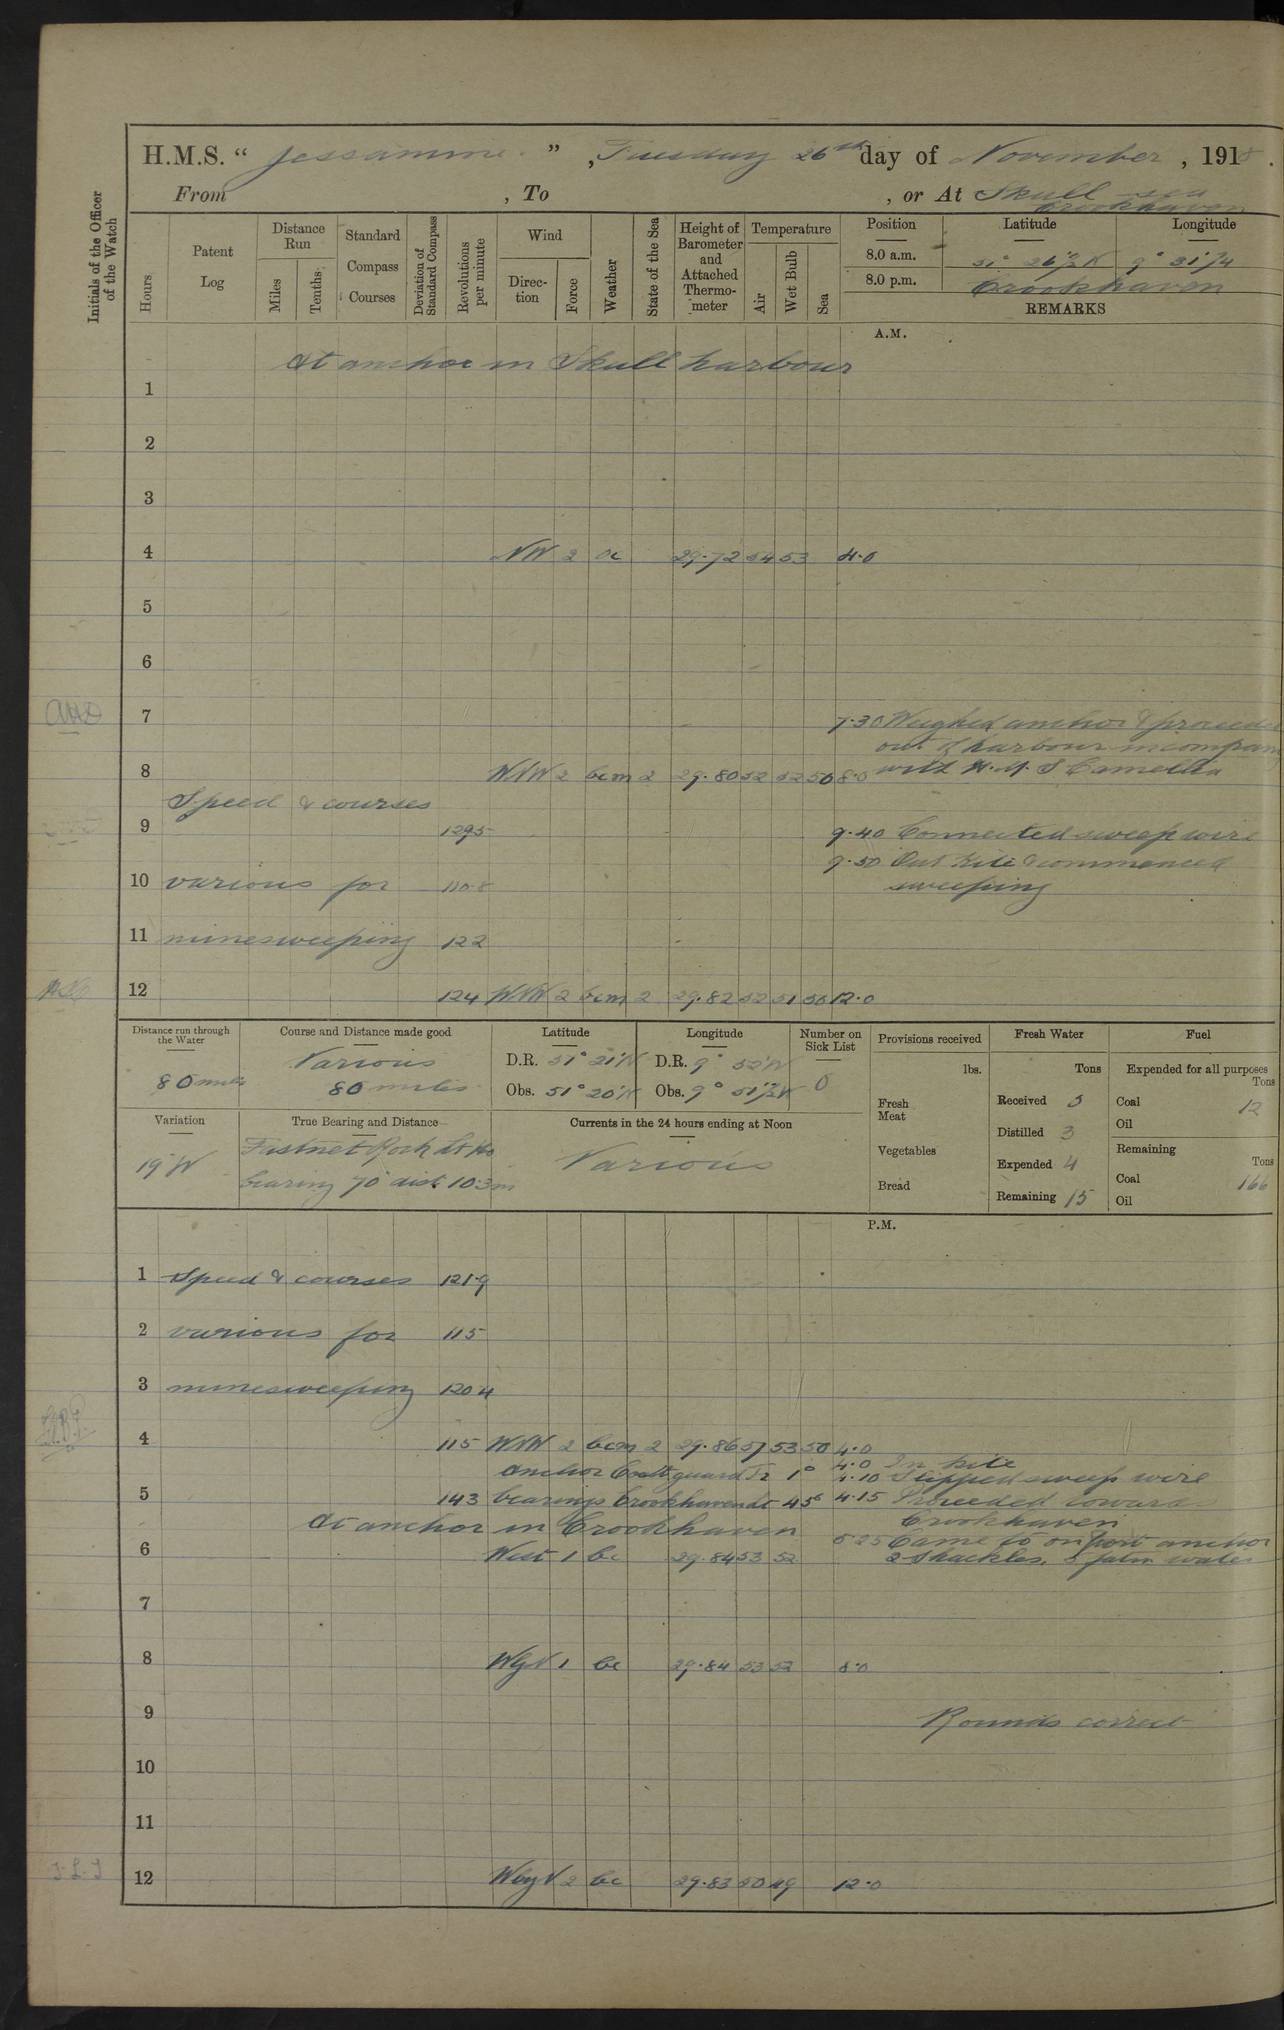 H.M.S. " Jessamine. ", Tuesday 26th day of November, 1918.
From , To , or At Skull sea
Crookhaven
Initials of the Officer of the Watch
Hours
Patent Log
Distance Run
Miles
Tenths
Standard Compass Courses
Deviation of Standard Compass
Revolutions per minute
Wind
Direction
Force
Weather
State of the Sea
Height of Barometer and Attached Thermometer
Temperature
Air
Wet Bulb
Sea
Position Latitude Longitude
8.0 a.m. 51° 26'½ N 9° 31'¼
8.0 p.m. Crookhaven
REMARKS
A.M.
At anchor in Skull harbour
1
2
3
4 NW 2 oc 29.72 54 53 4.0
5
6
7 7.30 Weighed anchor & proceeded
out of harbour in company
8 WNW 2 bcm 2 29.80 52 52 50 8.0 with H.M.S Camellia
Speed & courses
9 129.5 9.40 Connected sweep wire
9.50 Out kite & commenced
10 various for 110.8 sweeping
11 minesweeping 122
12 124 WNW 2 bcm 2 29.82 52 51 50 12.0
Distance run through the Water
80 miles
Course and Distance made good
Various
80 miles
Latitude
D.R. 51° 21' N
Obs. 51° 20' N
Longitude
D.R. 9° 52' W
Obs. 9° 51'½ W
Number on Sick List
0
Provisions received
lbs.
Fresh Meat
Vegetables
Bread
Fresh Water
Tons
Received 5
Distilled 3
Expended 4
Remaining 15
Fuel
Expended for all purposes
Tons
Coal 12
Oil
Remaining
Tons
Coal 166
Oil
Variation
19° W
True Bearing and Distance
Fastnet Rock Lt Ho
bearing 70° dist 10.3m
Currents in the 24 hours ending at Noon
Various
P.M.
1 Speed & courses 121.9
2 various for 115
3 minesweeping 120.4
4 115 WNW 2 bcm 2 29.86 57 53 50 4.0
4.0 In kite
Anchor Coastguard Tr 1° 4.10 Slipped sweep wire
5 143 bearings Crookhaven Lt 45° 4.15 Proceeded towards
Crookhaven
At anchor in Crookhaven 5.25 Came to on port anchor
6 West 1 bc 29.84 53 52 2 shackles. 5 fatm water
7
8 WbyN 1 bc 29.84 53 52 8.0
9 Rounds correct
10
11
12 WbyN 2 bc 29.83 50 49 12.0